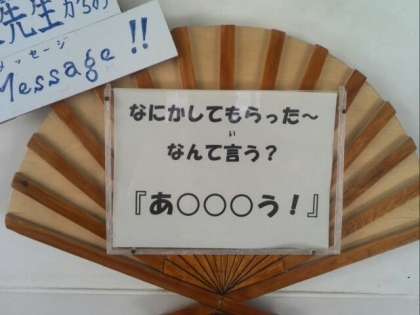 先生からの
メッセージ
Message!!
なにかしてもらった～
なんて言う？
い
『あ○○○う！』